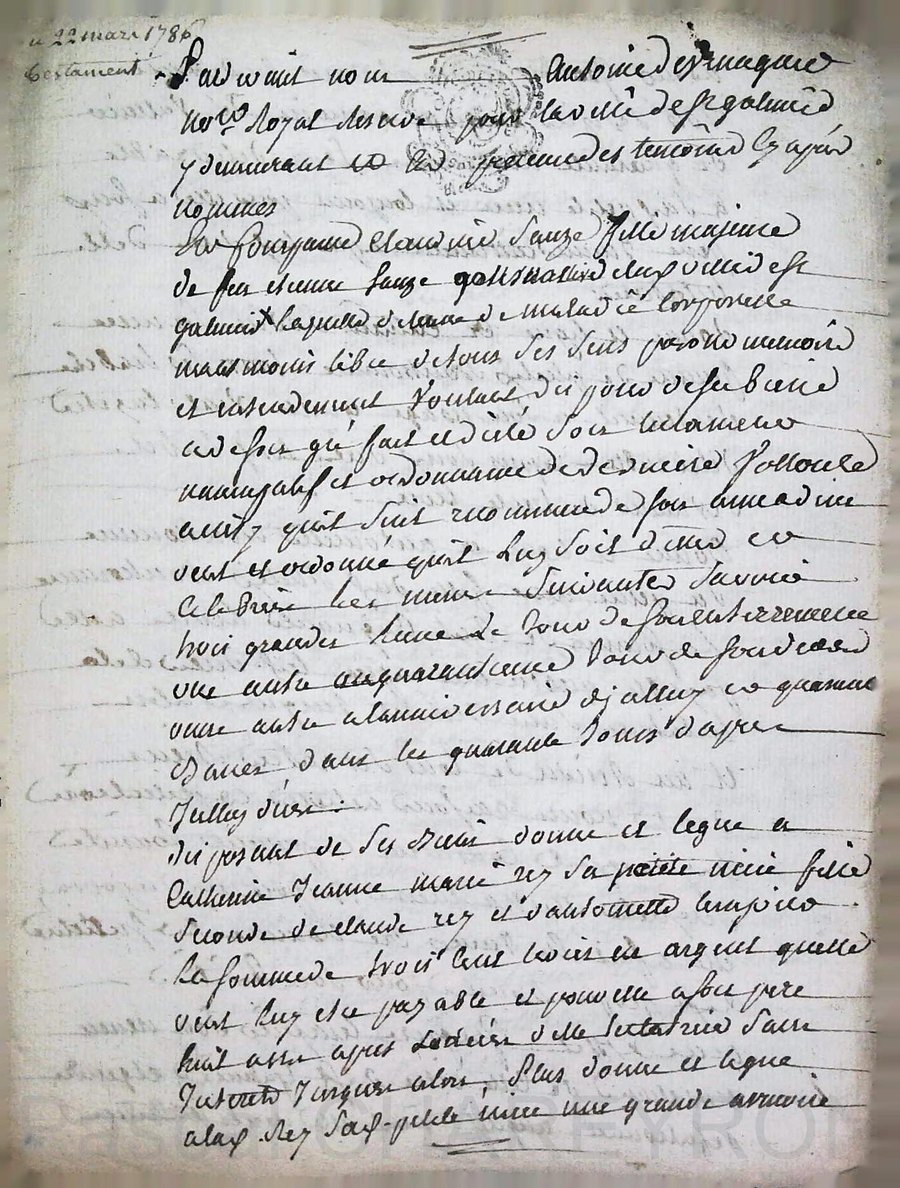 22 mars 1786
testament
Pardevant nous Antoine Desmagnie
no.re Royal Reservé pour la ville de St galmier
y demeurant et en presence des temoins cy apres
nommés
Est comparue Claudine Sauze fille majeure
de feu etienne Sauze de la ville de St
galmier laquelle detenue de maladie corporelle
mais moins libre de tous ses sens parolle memoire
et entendement voulant disposer de ses biens
a de son gré fait et dicté son testament
nuncupatif et ordonnance de derniere vollonté
ainsy quil suit recommande son ame a dieu
veut et ordonne quil luy soit dit et
celebré les messes suivantes savoir
trois grandes le Jour de son enterrement
une autre au quarantieme Jour de son deces
une autre a lanniversaire dicelluy et quarante
basses dans les quarante Jours dapres
Icelluy deces.
disposant de ses biens donne et legue a
Catherine Jeanne marie rey sa petite niece fille
seconde de claude rey et dantoinette
la somme de trois cent livres en argent quelle
veut luy etre payable et pour elle a son pere
huit ans apres le deces delle testatrice sans
Interets Jusques alors, Plus donne et legue
a lad. Rey sad. petite niece une grande armoire